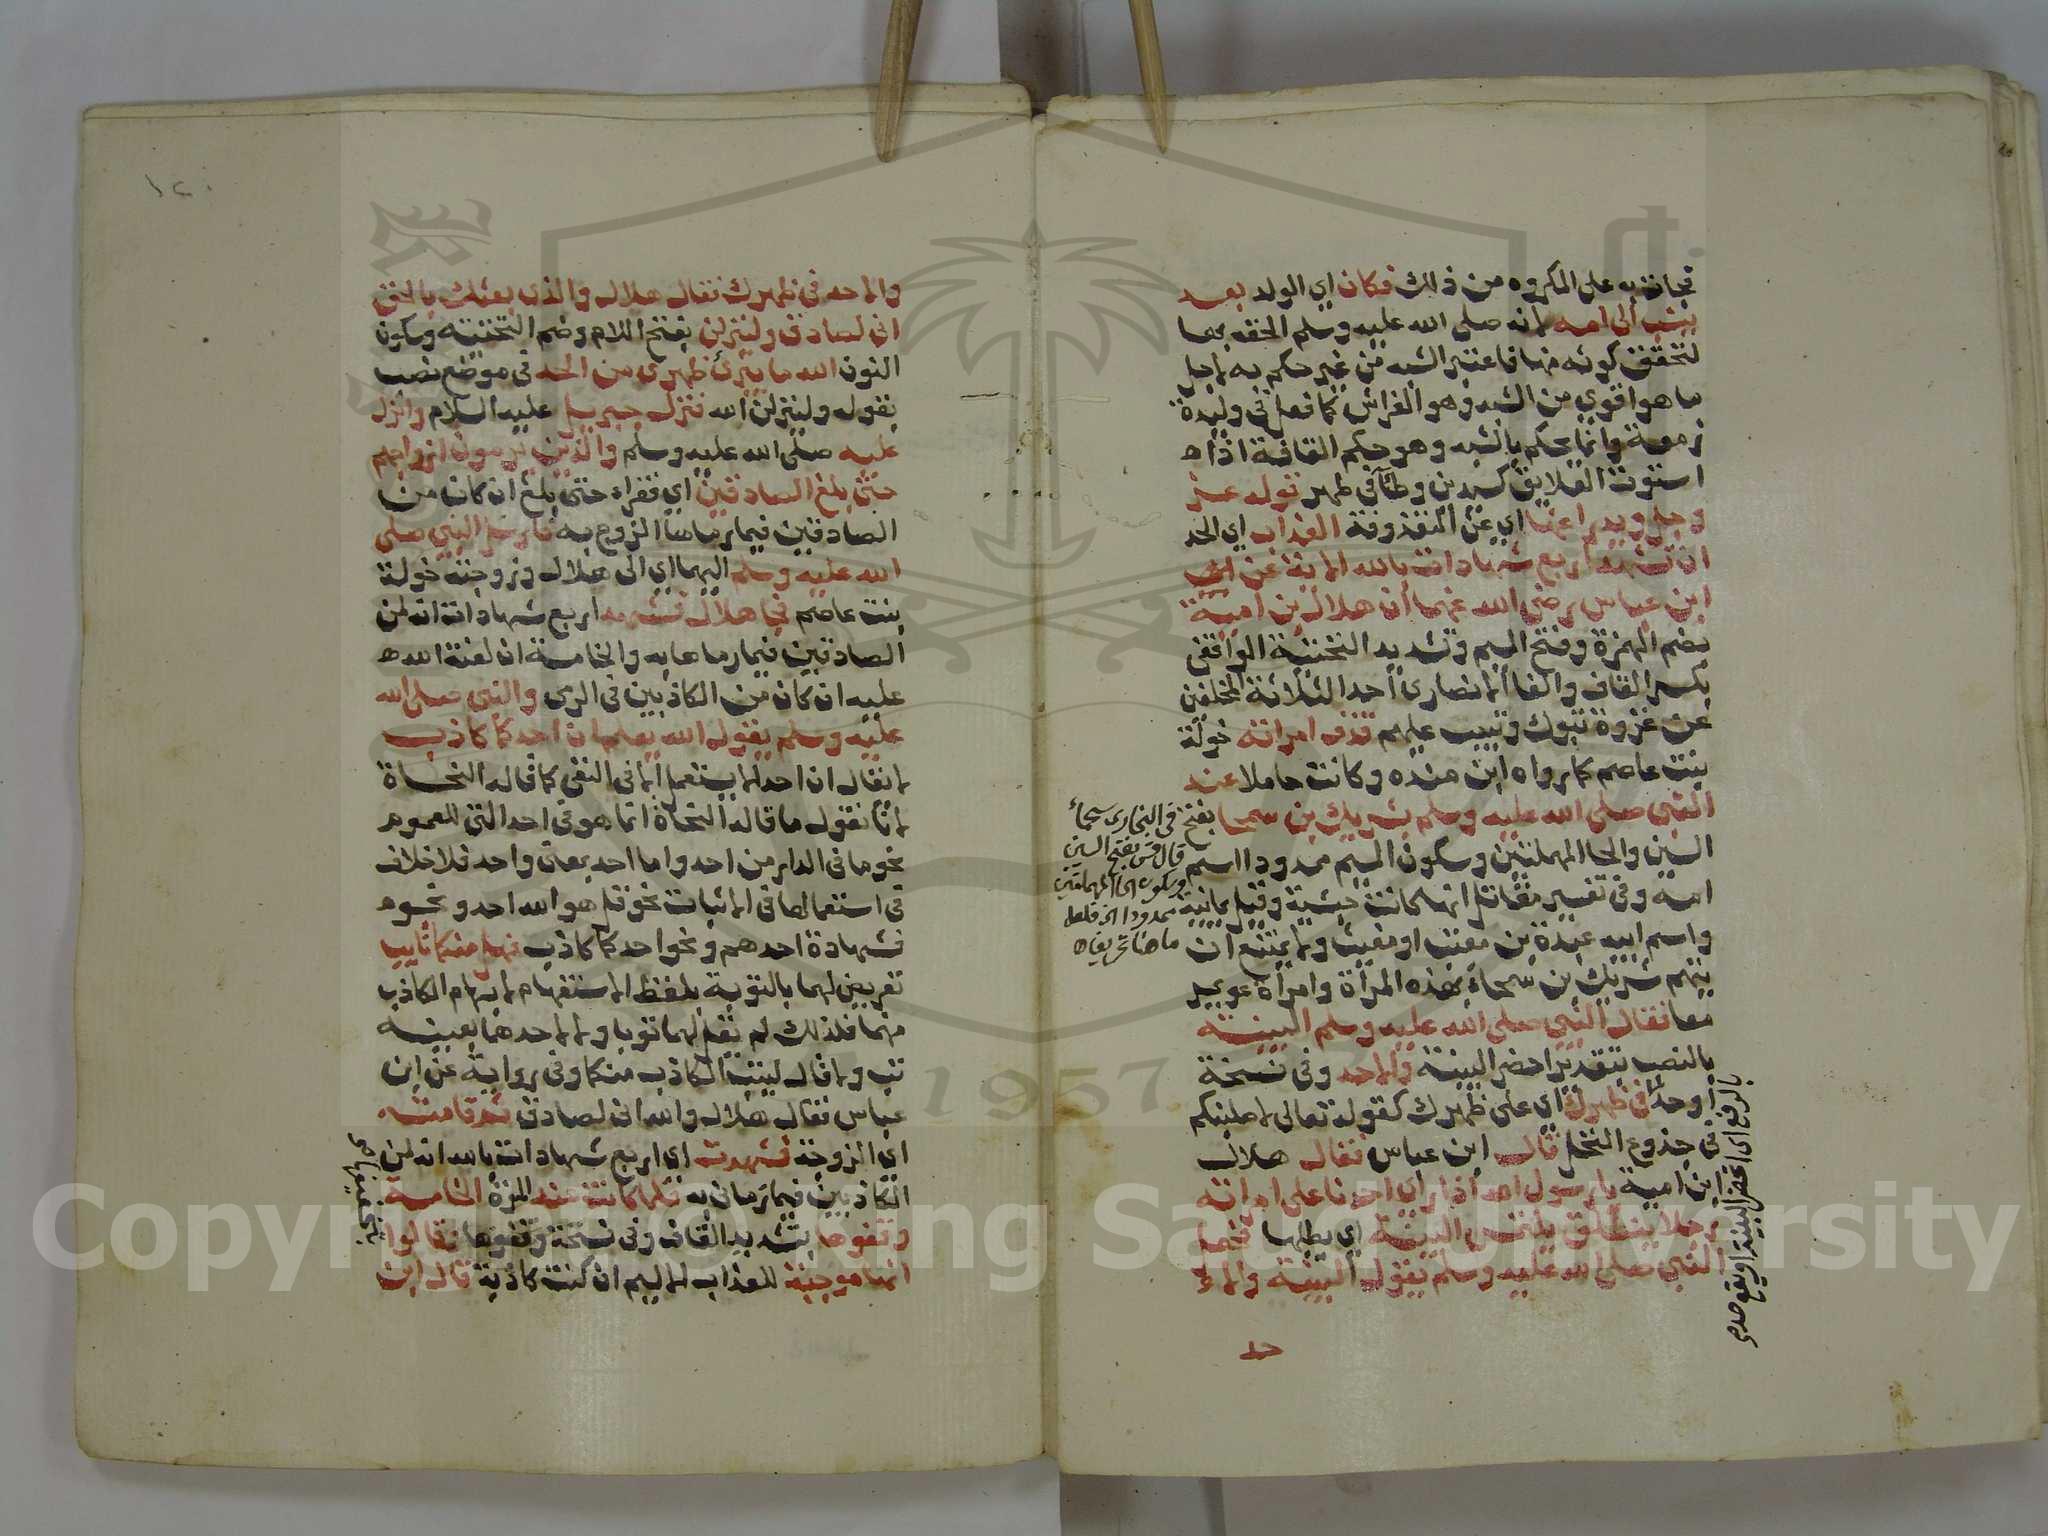 فجاءت به على المكروه من ذلك فكان اي الولد بعد
ينسب الى امه لانه صلى الله عليه وسلم الحقه بها
لتحقق كونه منها فاعتبر الشبه من غير حكم به لاجل
ما هو اقوى من الشبه وهو الفراش كما فعل في وليدة
زمعة وانما يحكم بالشبه وهو حكم القافة اذا
استوت العلايق كسيدين وطئا في طهر قوله عز
وجل ويدرا عنها اي عن المقذوفة العذاب اي الحد
ان تشهد اربع شهادات بالله الاية عن
ابن عباس رضي الله عنهما ان هلال بن امية
بضم الهمزة وفتح الميم وتشديد التحتية الواقفي
بكسر القاف والفا الانصاري احد الثلاثة المخلفين
عن غزوة تبوك وتيب عليهم قذف امراته خولة
بنت عاصم كما رواه ابن منده وكانت حاملا عند
النبي صلى الله عليه وسلم بشريك بن سحما بفتح
السين والحا المهملتين وسكون الميم ممدودا اسم
امه وفي تفسير مقاتل انها كانت حبشية وقيل يمانية
واسم ابيه عبدة بن معتب او مغيث ولا يمتنع ان
يتهم شريك بن سحماء بهذه المرأة وامرأة عويمر
معا فقال النبي صلى الله عليه وسلم البينة
بالنصب بتقدير احضر البينة والا حد وفي نسخة
او حد في ظهرك اي على ظهرك كقوله تعالى لاصلبنكم
في جذوع النخل قال ابن عباس فقال هلال
ابن امية يا رسول الله اذا راى احدنا على امراته
رجلا ينطلق يلتمس البينة اي يطلبها فجعل
النبي صلى الله عليه وسلم يقول البينة والا
حد
في البخاري سحماء
قال بفتح السين
وسكون الحا المهملتين
ممدودا
ما هنا تحريف
بالرفع اي احضر البينة او يقع حد
١٢٠
والا حد في ظهرك فقال هلال والذي بعثك بالحق
اني لصادق ولينزلن بفتح اللام وضم التحتية وسكون
النون الله ما يبرئ ظهري من الحد في موضع نصب
بقوله ولينزلن الله فنزل جبريل عليه السلام وانزل
عليه صلى الله عليه وسلم والذين يرمون ازواجهم
حتى بلغ الصادقين اي فقراء حتى بلغ ان كان من
الصادقين فيما رماها الزوج به فارسل النبي صلى
الله عليه وسلم اليهما اي الى هلال وزوجته خولة
بنت عاصم فجا هلال فشهد اربع شهادات انه لمن
الصادقين فيما رماها به والخامسة ان لعنة الله
عليه ان كان من الكاذبين في الرمي والنبي صلى الله
عليه وسلم يقول الله يعلم ان احدكما كاذب
لا نقال ان احدا لا يستعمل الا في النفي كما قاله النحاة
لانا نقول ما قاله النحاة انما هو في احد التي للعموم
نحو ما في الدار من احد واما احد بمعنى واحد فلا خلاف
في استعمالها في الاثبات نحو قل هو الله احد ونحوه
فشهادة احدهم ونحو احدكما كاذب فهل منكما تايب
تعريض لهما بالتوبة بلفظ الاستفهام لابهام الكاذب
منهما فلذلك لم يقل لهما توبا ولا لاحدهما بعينه
تب ولا قال ليتب الكاذب منكما وفي رواية عن ابن
عباس فقال هلال والله اني لصادق ثم قامت
اي الزوجة فشهدت اي اربع شهادات بالله انه لمن
الكاذبين فيما رماني به فلما كانت عند المرة الخامسة
وقفوها بتشديد القاف وفي نسخة وقفوها وقالوا
انها موجبة للعذاب الاليم ان كنت كاذبة قال ابن
Copyright © King Saud University
1957